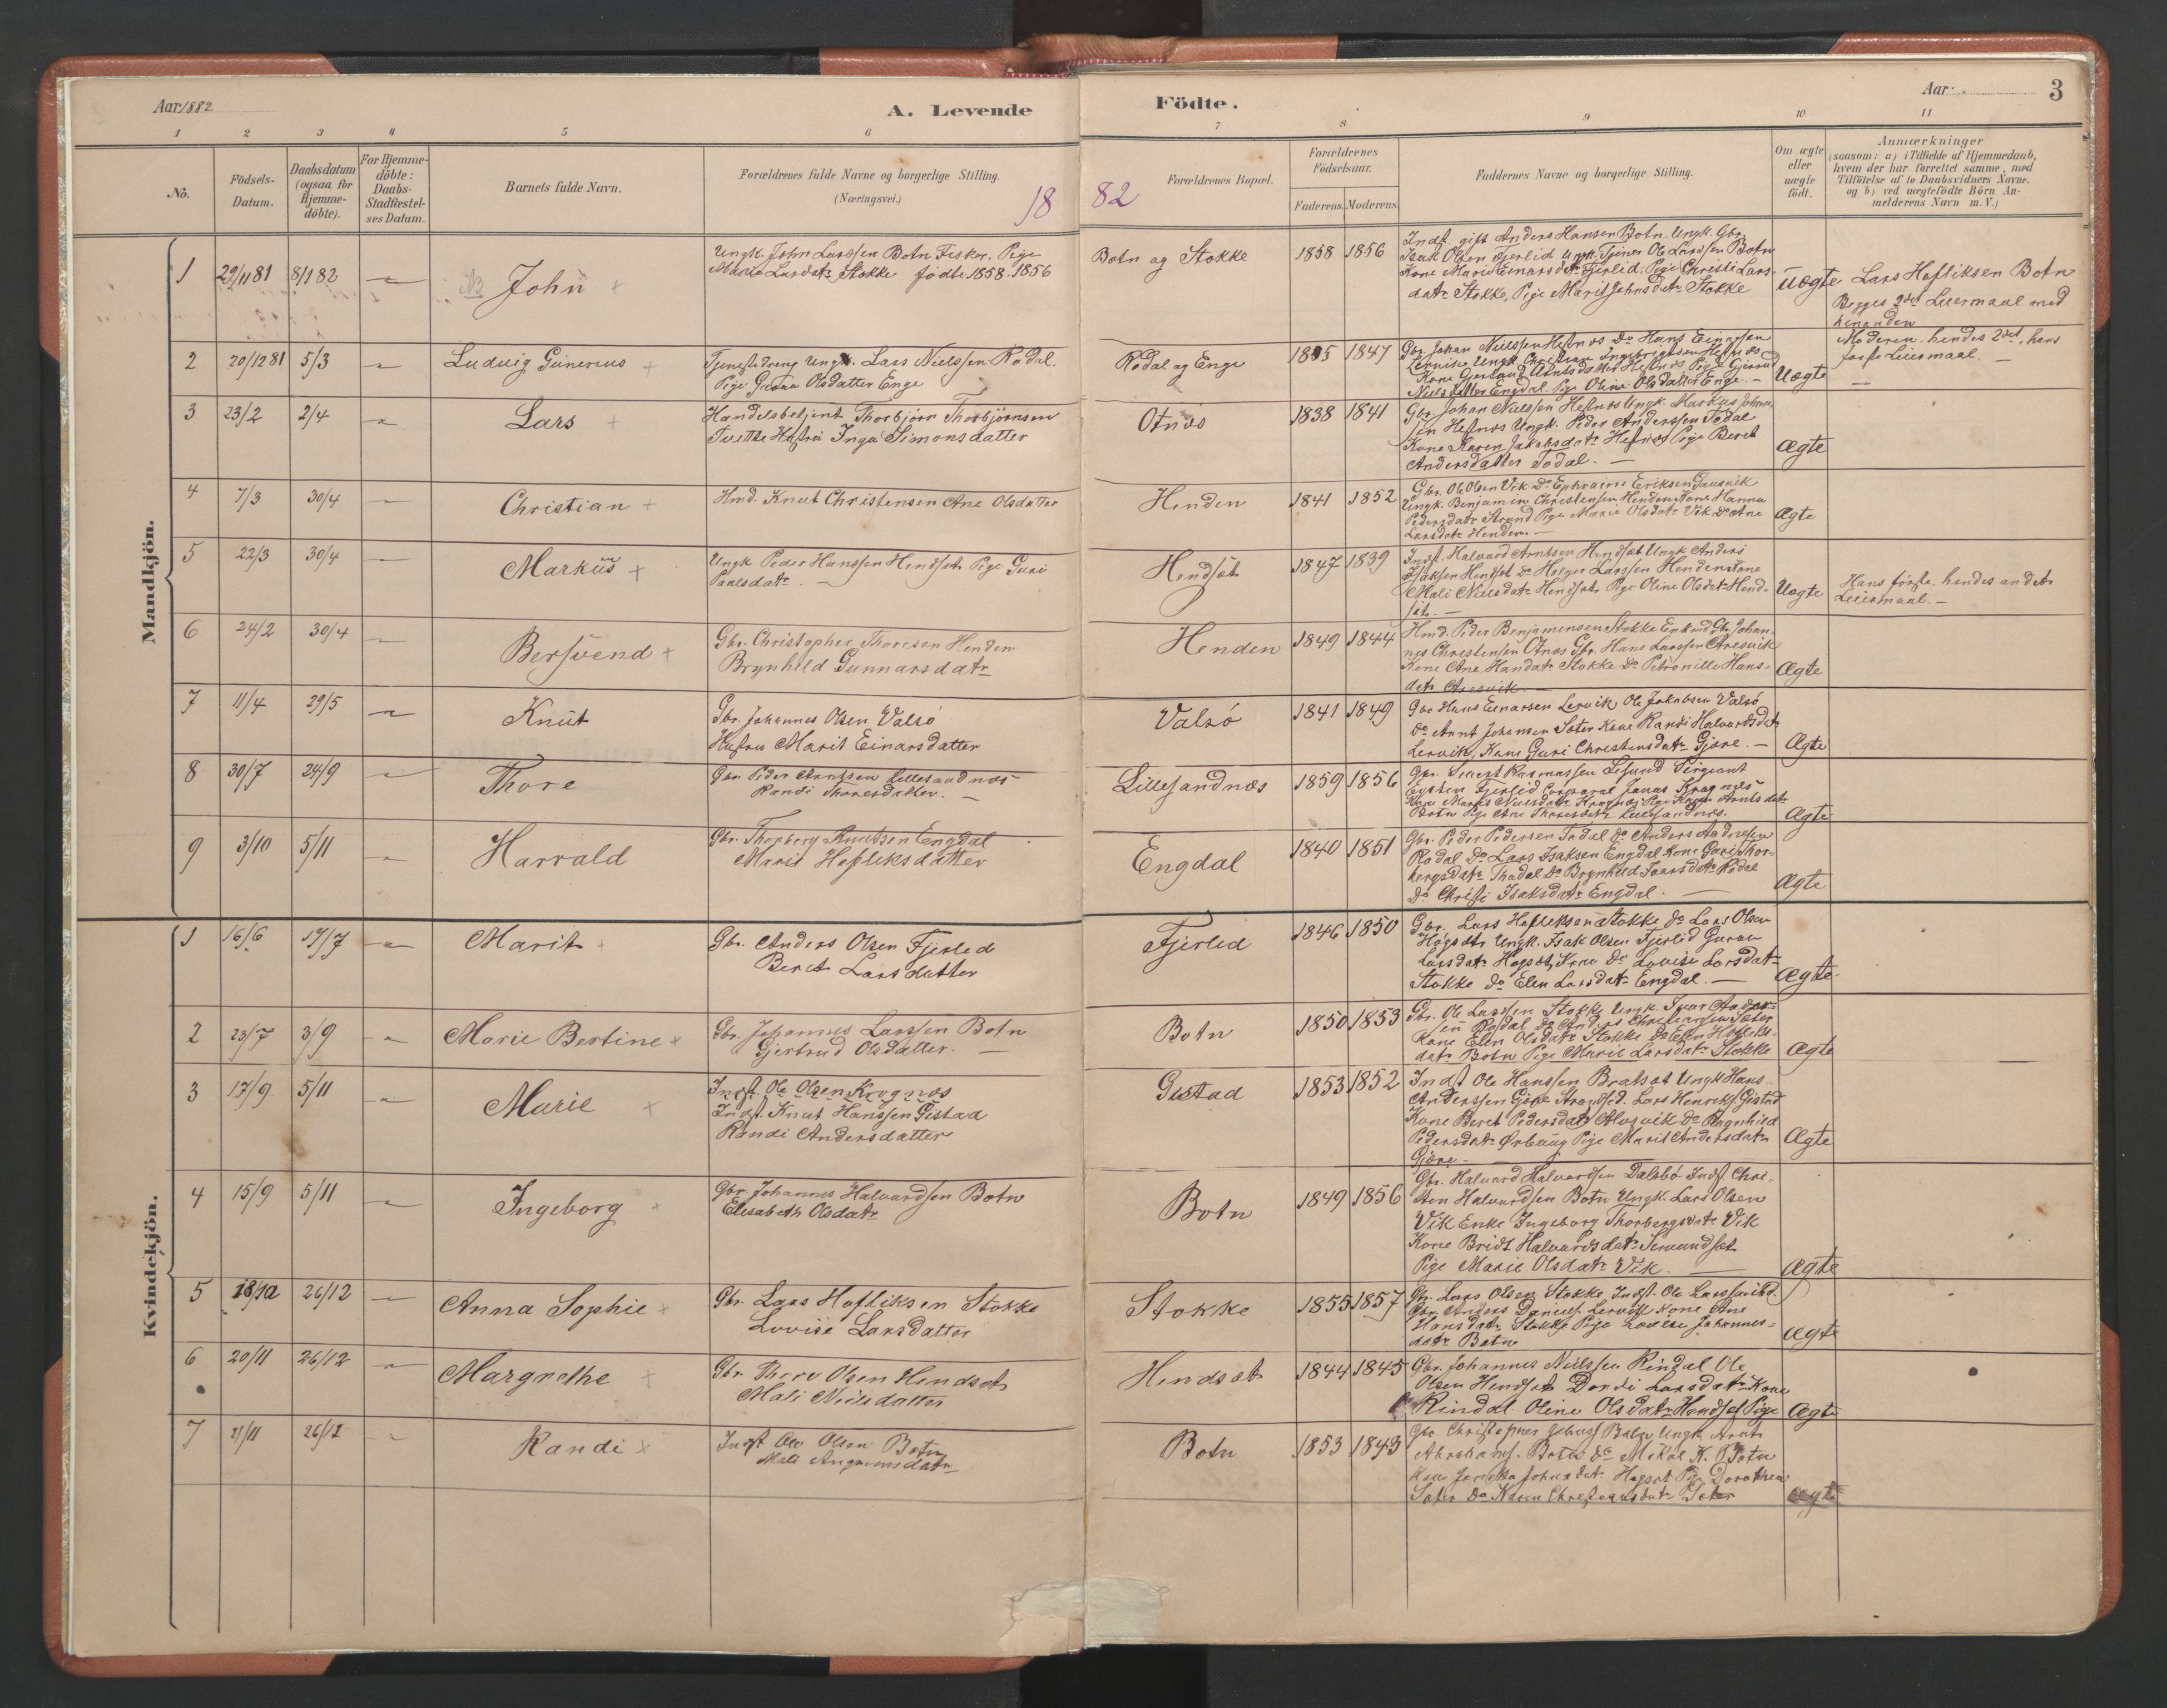 Aar 1882
A. Levende
Födte.
Aar
3
1 2 3 4 5 6 7 8 9 10 11
No.
Födsels-Datum.
Daabsdatum (ogsaa for Hjemme-döbte).
For Hjemme-döbte: Daabs-Stadfæstel-ses Datum.
Barnets fulde Navn.
Forældrenes fulde Navne og borgerlige Stilling. (Næringsvei.)
18
82
Forældrenes Bopæl.
Forældrenes Födselsaar.
Faderens. Moderens.
Faddernes Navne og borgerlige Stilling.
Om ægte eller uægte födt.
Anmærkninger
(saasom: a) i Tilfælde af Hjemmedaab, hvem der har forrettet samme, med Tilföielse af to Daabsvidners Navne. og b) ved uægtefödte Börn An-melderens Navn m. V.)
Mandkjön.
1 29/11 81 8/1 82 John
Ungk. John Larssen Botn Fisker, Pige
Marie Larsdatr Stokke födte 1858. 1856
Botn og Stokke 1858 1856
Indst. gift Anders Hansen Botn, Ungk. Gbr.
Isak Olsen Fjerlid Ungk. Tjener Ole Larssen Botn
Kone Mari Einarsdtr Fjerlid, Pige Christi Lars-
datr Stokke, Pige Marit Johnsdatr Stokke
Uægte
Lars Hafliksen Botn
Begges 2det Leiermaal med
hinanden
2 20/12 81 5/3 Ludvig Gunerius
Tjenestedreng Ungk. Lars Nielssen Rødal.
Pige Olsdatter Enge
Rødal og Enge 1855 1847
Gbr. Johan Nielssen Hefnes Do Hans Einarsen
Lervik Ungk. Christian Ingebrigtsen Hefnes
Kone Arntsdatter Hefnes Pige
Nielsdatter Engdal Pige Oline Olsdatter Enge
Uægte
Moderen. hendes 2det, hans
første Leiermaal.
3 23/2 2/4 Lars
Handelsbetjent Thorbjörn Thorbjörnsen
Tvette Hustru Inga Simonsdatter
Otnæs 1838 1841
Gbr. Johan Nielssen Hefnes Ungk. Markus Johan-
sen Hefnes Ungk. Peder Anderssen Todal
Kone Karen Jakobsdatr Hefnes Pige Beret
Andersdatter Todal.
Ægte
4 7/3 30/4 Christian
Hmd. Knut Christensen Ane Olsdatter
Henden 1841 1852
Gbr. Ole Olsen Vik Do Ephraim Eriksen
Ungk. Benjamin Christensen Henden Kone Hanna
Pedersdatr Strand Pige Marie Olsdatr Vik Do Ane
Larsdatr Henden.
Ægte
5 22/3 30/4 Markus
Ungk Peder Hanssen Hendset Pige Guri
Paalsdatr.
Hendset 1847 1839
Indst. Halvard Arntsen Hendset Ungk Anders
Isaksen Hendset Do Holger Larssen Henden Kone
Mali Nielsdatr Hendset Pige Oline Olsdatr Hend-
set.
Uægte
Hans første, hendes andet
Leiermaal.
6 24/2 30/4 Bersvend
Gbr. Christopher Thoresen Henden
Brynhild Gunnarsdatr
Henden 1849 1844
Hmd. Peder Benjaminsen Stokke Gbr Johan-
nes Christensen Otnes Gbr. Hans Larssen Aresvik
Kone Ane Hansdatr Stokke Do Petronille Hans-
datr Aresvik.
Ægte
7 11/4 29/5 Knut
Gbr. Johannes Olsen Valsö
Hustru Marit Einarsdatter
Valsö 1841 1849
Gbr Hans Einarsen Lervik Ole Jakobsen Valsö
Do Arnt Johansen Sæter Kone Randi Halvardsdatr
Lervik, Kone Guri Christensdatr Gjøre.
Ægte
8 30/7 24/9 Thore
Gbr. Peder Arntsen Lillesandnæs
Randi Thoresdatter.
Lillesandnæs 1859 1856
Gbr. Rasmussen Sergeant
Fjerlid Corporal Jonas Kragnes
Kone Nielsdatr Kragnæs Pige Karen Arntsdatr
Botn Pige Ane Thoresdatr Lillesandnæs.
Ægte
9 3/10 5/11 Harrald
Gbr. Thorberg Knutsen Engdal
Marit Hafliksdatter
Engdal 1840 1851
Gbr. Peder Pedersen Todal Do Anders Andersen
Rødal Do Lars Isaksen Engdal Kone Guri Thor-
bergsdatr Thodal Do Brynhild Ivarsdatr Rødal
Do Christi Isaksdatr Engdal.
Ægte
Kvindekjön.
1 16/6 17/7 Marit
Gbr. Anders Olsen Fjerled
Beret Larsdatter
Fjerled 1846 1850
Gbr. Lars Hafliksen Stokke Do Lars Olsen
Hogset Ungk. Isak Olsen Fjerlid Guran
Larsdatr Hogset, Kone Do Louise Larsdatr
Stokke Do Elen Larsdatr Engdal.
Ægte
2 23/7 3/9 Marie Bertine
Gbr. Johannes Larssen Botn
Gjertrud Olsdatter.
Botn 1850 1853
Gbr. Ole Larssen Stokke Ungk. Ivar Anders-
sen Rødal Do Anders Christiansen Sæter
Kone Elen Olsdatr Stokke Do Elen Hafliks-
datr Botn Pige Marie Larsdatr Stokke
Ægte
3 17/9 5/11 Marie
Indst. Ole Olsen Kragnæs
Indst. Knut Hanssen Gistad
Randi Andersdatter
Gistad 1853 1852
Indst Ole Hanssen Bratset Ungk Hans
Anderssen Gjöre Lars Henriks. Gistad
Kone Beret Pedersdatr Alvsvik Do Ragnhild
Pedersdatr Ørbæug Pige Marit Andersdatr
Gjöre
Ægte
4 15/9 5/11 Ingeborg
Gbr. Johannes Halvardsen Botn
Elisabeth Olsdatr
Botn 1849 1856
Gbr. Halvard Halvardsen Dalsbø Indst Chri-
sten Halvardsen Botn Ungk. Lars Olsen
Vik Enke Ingeborg Thorbergsdatr Vik
Kone Bridt Halvardsdatr
Pige Marie Olsdatr Vik.
Ægte
5 18/10 26/12 Anna Sophie
Gbr. Lars Hafliksen Stokke
Lovise Larsdatter
Stokke 1855 1857
Gbr. Lars Olsen Stokke Indst. Ole Larssen
Gbr. Anders Daniels. Lervik Kone Ane
Hansdatr Stokke Pige Lovise Johannes-
datr Botn
Ægte
6 20/11 26/12 Margrethe
Gbr. Thore Olsen Hendset
Mali Nielsdatter
Hendset 1844 1845
Gbr. Johannes Nielssen Rindal Ole
Olsen Hendset Dordi Larsdatr Kone
Rindal Oline Olsdatr Hendset Pige
Ægte
7 21/11 26/12 Randi
Indst Ole Olsen Botn
Mali
Botn 1853 1843
Gbr Christopher Botn Ungk. Arnt
Abrahams. Botn Do Mikal K. Botn
Kone Johnsdatr Hogset Pige Dorothea
Sæter Do Karen Christiansdatr Sæter
Ægte